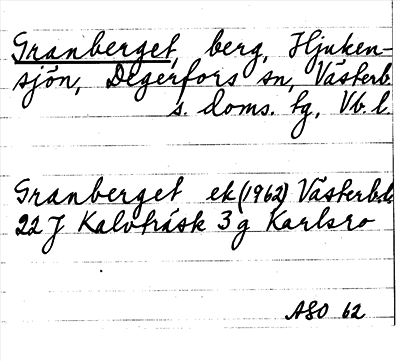 Granberget, berg, Hjuken-
sjön, Degerfors sn, Västerb.
s. doms. tg, Vb. l.
Granberget ek (1962) Västerb. l.
22 J Kalvträsk 3 g Karlsro
ASO 62